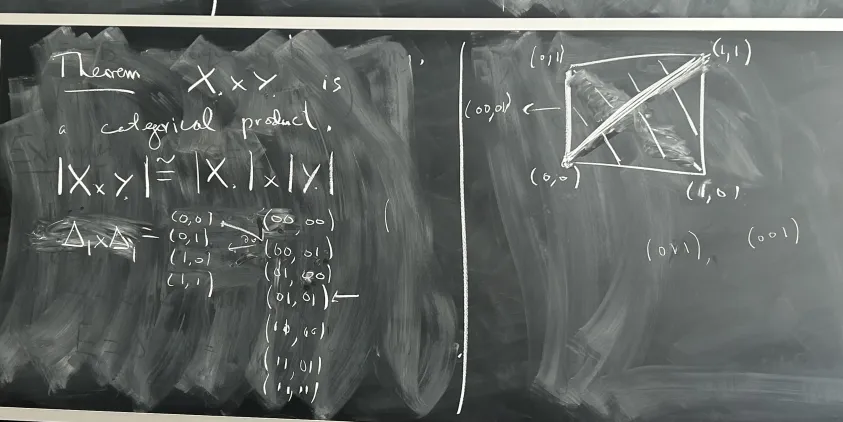 Theorem X. x Y. is
a categorical product.
|X. x Y.| ≅ |X.| x |Y.|
Δ₁ x Δ₁ =
(0,0)
(0,1)
(1,0)
(1,1)
(00,00)
(00,01)
(01,00)
(01,01) ←
(11,01)
(11,11)
(0,1)
(1,1)
(00,01) ←
(0,0)
(1,0)
(011), (001)